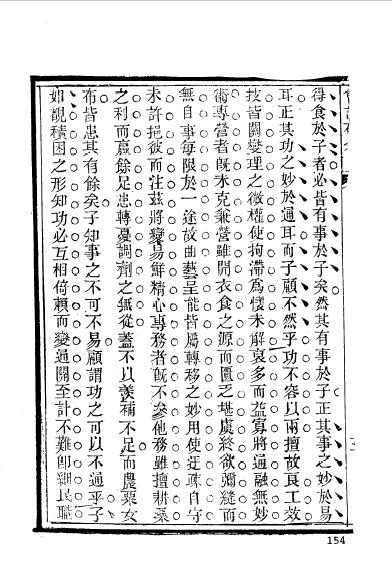 得食於子者必皆有事於子矣然其有事於子正其事之妙於易
耳正其功之妙於通耳而子顧不然乎功不容以兩擅故良工效
技皆關燮理之微權使拘滯為懷未解裒多而益寡將通融無妙
術專營者既未克兼營雖開衣食之源而匱乏堪虞終欲彌縫而
無自事每限於一途故曲藝呈能皆屬轉移之妙用使迂疎自守
未許挹彼而注茲將變易鮮精心專務者既不參他務雖擅耕桑
之利而贏餘足患轉憂調劑之無從蓋不以羨補不足而農粟女
布皆患其有餘矣子知事之不可不易顧謂功之可以不通乎子
如覩積困之形知功必互相倚賴而變通關至計不難即細民職
154